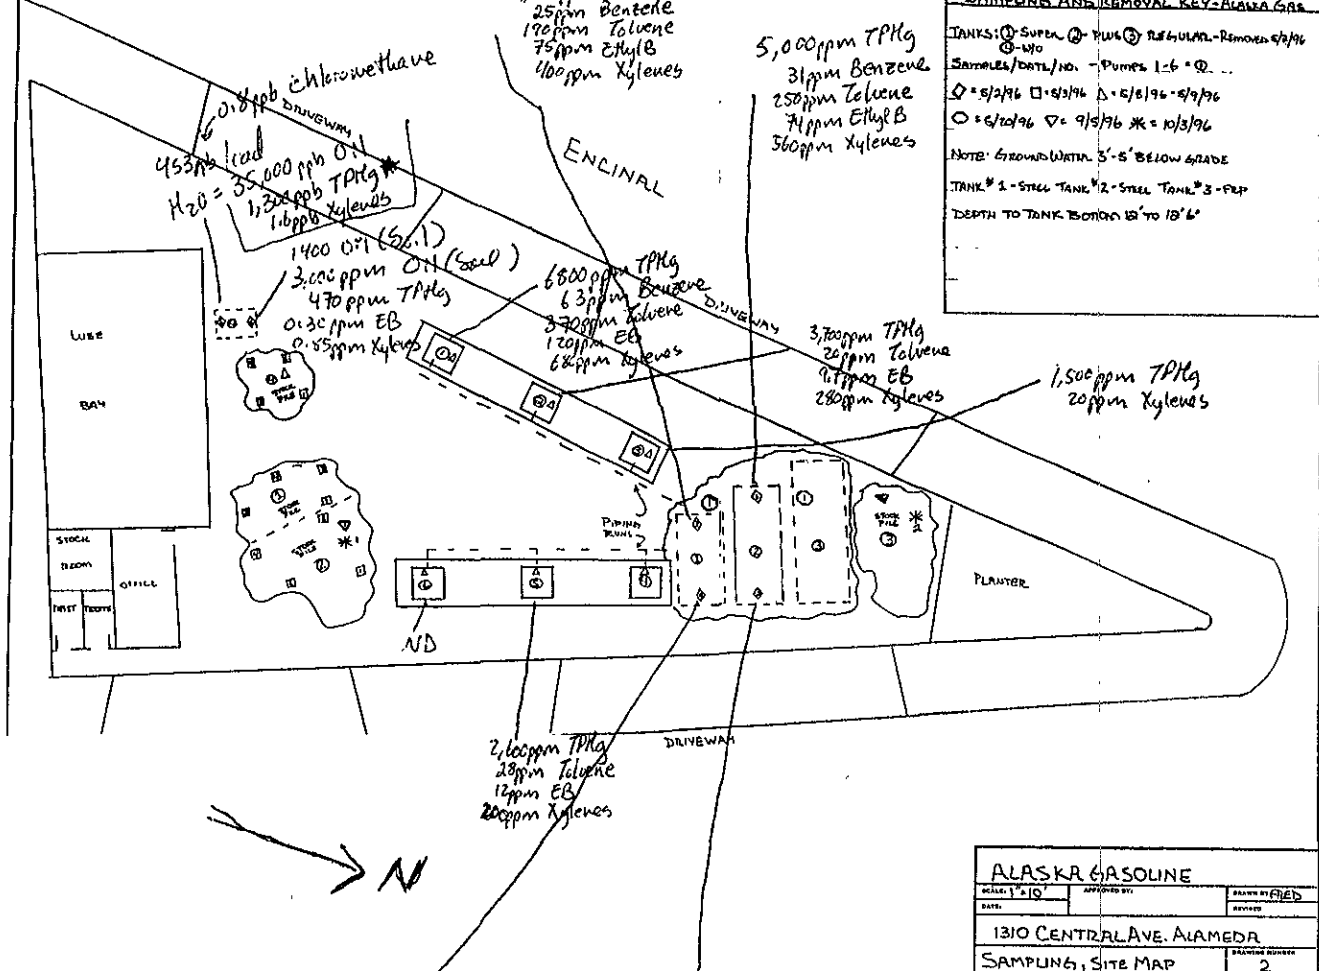 25ppm Benzene
170ppm Toluene
75ppm EthylB
400ppm Xylenes
5,000ppm TPHg
31ppm Benzene
250ppm Toluene
74ppm EthylB
560ppm Xylenes
SAMPLING AND REMOVAL KEY-ALASKA GAS
TANKS: ①-SUPER ②-PLUS ③ REGULAR-REMOVED 5/2/96
④-W/O
SAMPLES/DATE/NO. - PUMPS 1-6 = ①
◇ = 5/2/96 □ = 5/3/96 △ = 5/8/96-5/9/96
○ = 5/20/96 ▽ = 9/5/96 ✳ = 10/3/96
NOTE: GROUNDWATER 3'-5' BELOW GRADE
TANK #1-STEEL TANK #2-STEEL TANK #3-FRP
DEPTH TO TANK BOTTOM 12' TO 12'6"
0.8ppb Chloromethane
DRIVEWAY
453ppb lead
H2O = 35,000 ppb Oil
1,300ppb TPHg
1.6ppb Xylenes
ENCINAL
1400 Oil (Soil)
3,000ppm Oil (Soil)
470ppm TPHg
0.30ppm EB
0.85ppm Xylenes
6800ppm TPHg
63ppm Benzene
370ppm Toluene
120ppm EB
680ppm Xylenes
DRIVEWAY
3,700ppm TPHg
20ppm Toluene
9.7ppm EB
280ppm Xylenes
1,500ppm TPHg
20ppm Xylenes
LUBE
BAY
STOCK
PILE
STOCK
PILE
STOCK
PILE
PIPING
RUNS
STOCK
PILE
STOCK
ROOM
OFFICE
PLANTER
ND
2,600ppm TPHg
28ppm Toluene
12ppm EB
200ppm Xylenes
DRIVEWAY
N
ALASKA GASOLINE
SCALE: 1"=10'
APPROVED BY:
DRAWN BY FRED
DATE:
REVISED
1310 CENTRAL AVE. ALAMEDA
SAMPLING, SITE MAP
DRAWING NUMBER
2